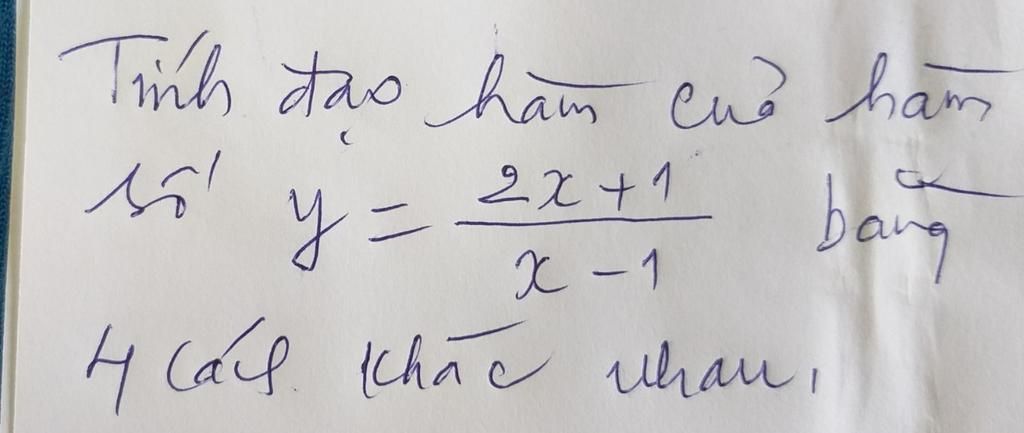 Tính đạo hàm của hàm
số y = \frac{2x+1}{x-1} bằng
4 cách khác nhau.